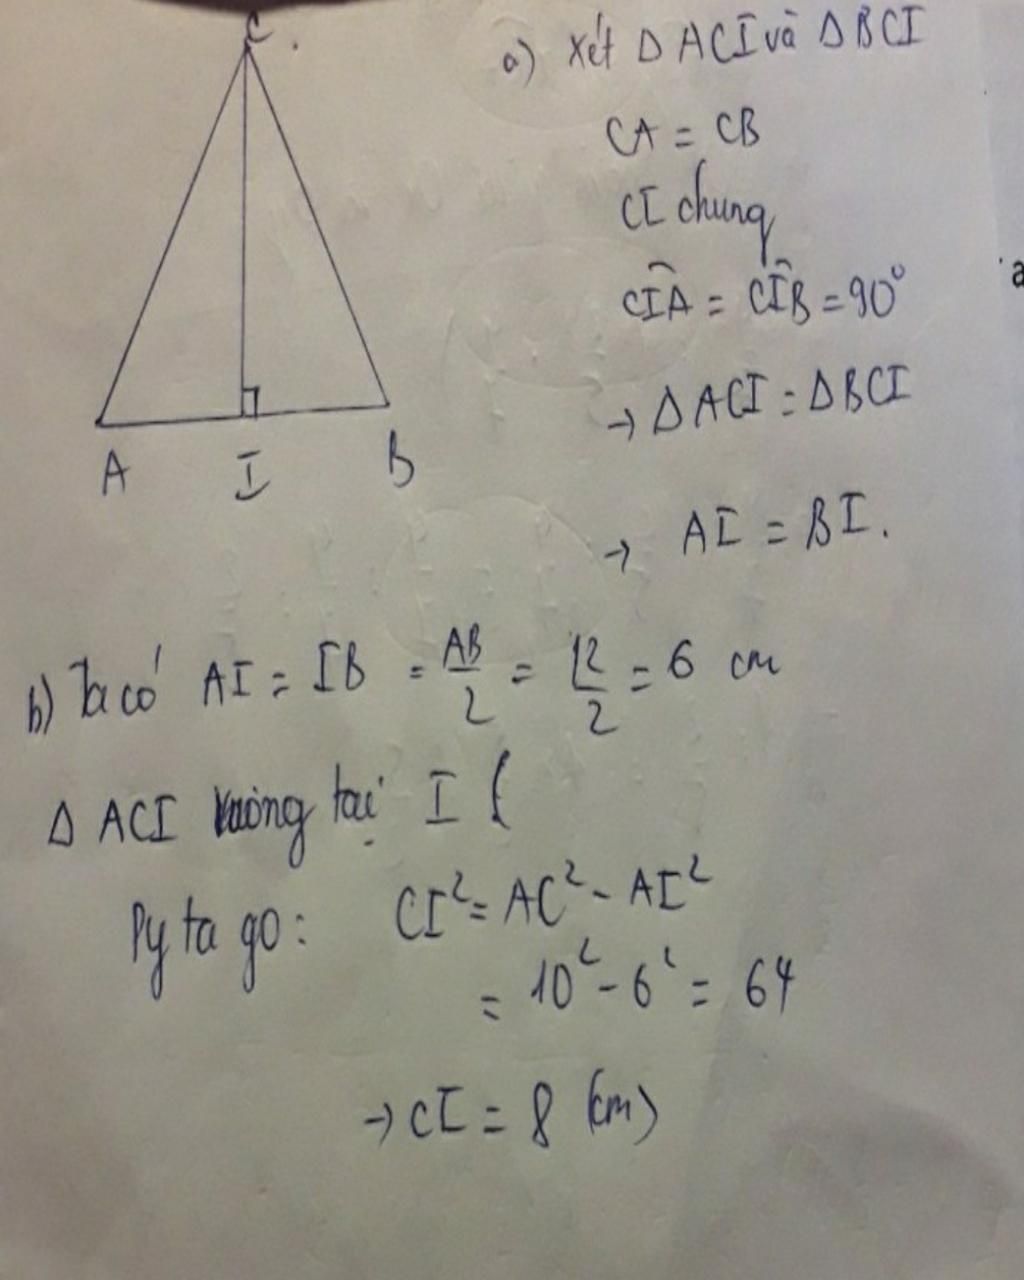 C
A
I
B
a) Xét Δ ACI và Δ BCI
CA = CB
CI chung
CIA^ = CIB^ = 90°
→ Δ ACI = Δ BCI
→ AI = BI.
b) Ta có AI = IB = AB/2 = 12/2 = 6 cm
Δ ACI vuông tại I (
Py ta go: CI² = AC² - AI²
= 10² - 6² = 64
→ CI = 8 (cm)
a